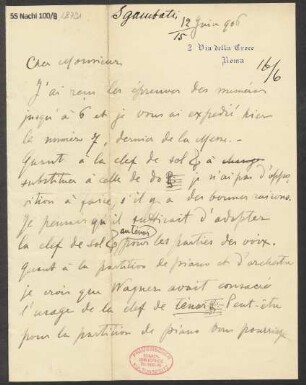 55 Nachl 100/B
Sgambati,
12 Juin 906
/15
2 Via della Croce
Roma
16/6
Cher Monsieur.
J'ai reçu les épreuves des numéros
jusqu'à 6 et je vous ai expedié hier
le numéro 7, dernier de la Messe. –
Quant à la clef de sol à
substituer à celle de do je n'ai pas d'oppo-
sition à faire, s'il y a des bonnes raisons.
Je pensais qu'il suffisait d'adapter
la clef de sol pour les parties des voix.
Quant à la partition de piano et d'orchestre
je crois que Wagner avait consacré
l'usage de la clef de ténor. Peut-être
pour la partition de piano vous pourriez